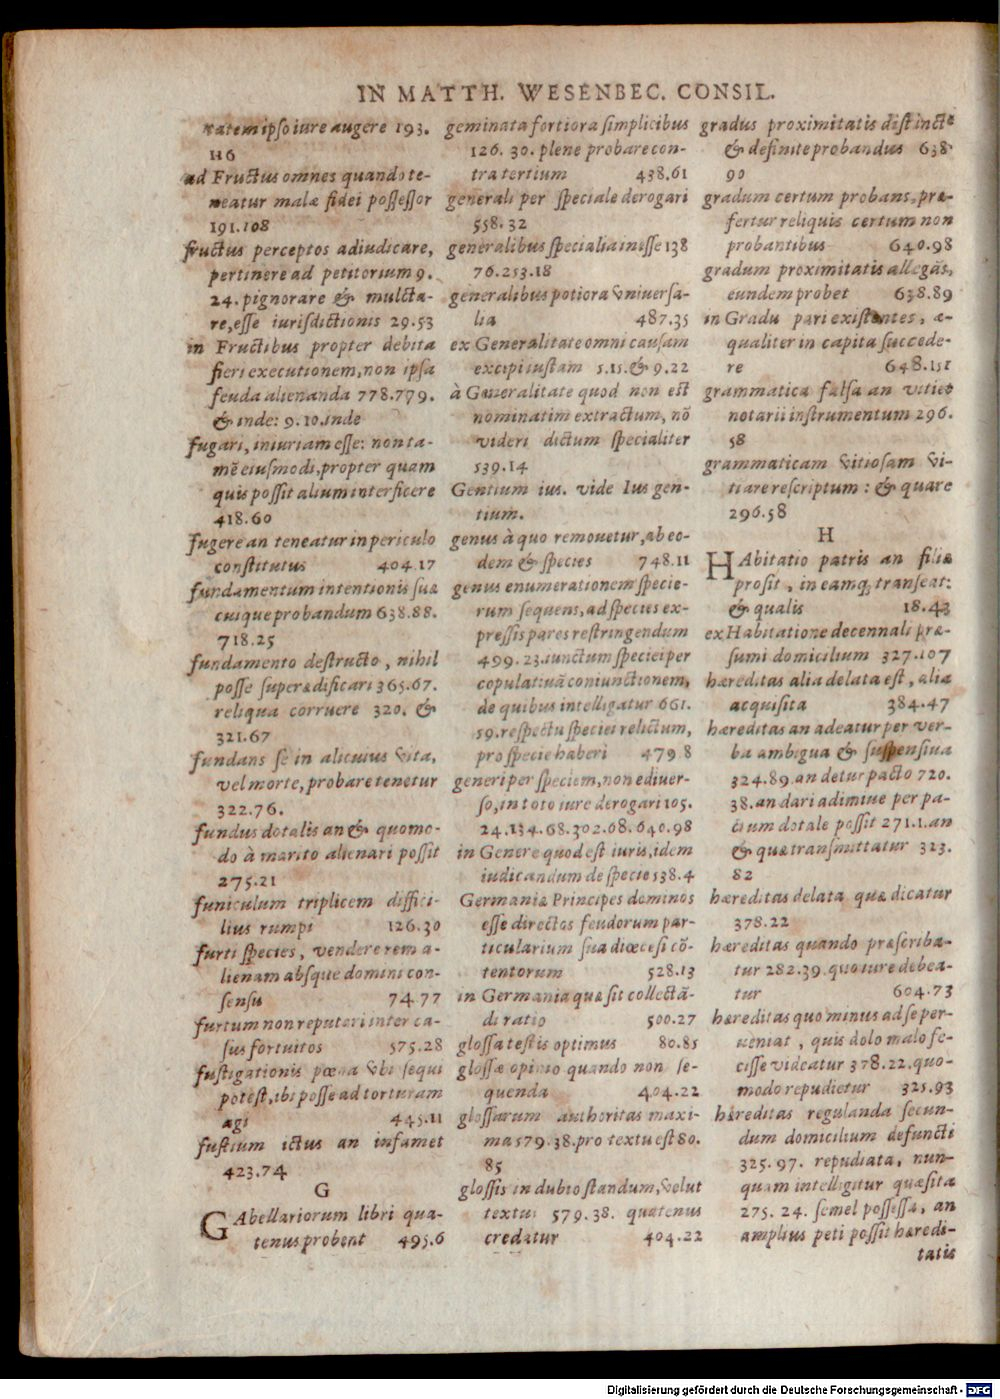 IN MATTH. WESENBEC. CONSIL.
ratem ipso iure augere 193.
116
ad Fructus omnes quando te-
neatur malæ fidei possessor
191.108
fructus perceptos adiudicare,
pertinere ad petitorium 9.
24. pignorare & mulcta-
re, esse iurisdictionis 29.53
in Fructibus propter debita
fieri executionem, non ipsa
feuda alienanda 778.779.
& inde: 9.10. inde
fugari, iniuriam esse: non ta-
mẽ eiusmodi, propter quam
quis possit alium interficere
418.60
fugere an teneatur in periculo
constitutus 404.17
fundamentum intentionis suæ
cuique probandum 638.88.
718.25
fundamento destructo, nihil
posse superædificari 365.67.
reliqua corruere 320. &
321.67
fundans se in alicuius vita,
vel morte, probare tenetur
322.76.
fundus dotalis an & quomo-
do à marito alienari possit
275.21
funiculum triplicem diffici-
lius rumpi 126.30
furti species, vendere rem a-
lienam absque domini con-
sensu 74.77
furtum non reputari inter ca-
sus fortuitos 575.28
fustigationis pœna vbi sequi
potest, ibi posse ad torturam
agi 445.11
fustium ictus an infamet
423.74
G
GAbellariorum libri qua-
tenus probent 495.6
geminata fortiora simplicibus
126. 30. plene probare con-
tra tertium 438.61
generali per speciale derogari
558.32
generalibus specialia inesse 138
76.253.18
generalibus potiora vniuersa-
lia 487.35
ex Generalitate omni causam
excipi iustam 5.15. & 9.22
à Generalitate quod non est
nominatim extractum, nõ
videri dictum specialiter
539.14
Gentium ius. vide Ius gen-
tium.
genus à quo remouetur, ab eo-
dem & species 748.11
genus enumerationem specie-
rum sequens, ad species ex-
pressis pares restringendum
499.23. iunctum speciei per
copulatiuã coniunctionem,
de quibus intelligatur 661.
59. respectu speciei relictum,
pro specie haberi 479 8
generi per speciem, non e diuer-
so, in toto iure derogari 105.
24.134.68.302.68.640.98
in Genere quod est iuris, idem
iudicandum de specie 538.4
Germaniæ Principes dominos
esse directos feudorum par-
ticularium sua diœcesi cõ-
tentorum 528.13
in Germania quæ sit collectã-
di ratio 500.27
glossa testis optimus 80.85
glossæ opinio quando non se-
quenda 404.22
glossarum authoritas maxi-
ma 579.38. pro textu est 80.
85
glossis in dubio standum, velut
textui 579.38. quatenus
credatur 404.22
gradus proximitatis distincte
& definite probandus 638
90
gradum certum probans, præ-
fertur reliquis certum non
probantibus 640.98
gradum proximitatis allegãs,
eundem probet 638.89
in Gradu pari existentes, æ-
qualiter in capita succede-
re 648.151
grammatica falsa an vitiet
notarii instrumentum 296.
58
grammaticam vitiosam vi-
tiare rescriptum: & quare
296.58
H
HAbitatio patris an filiæ
prosit, in eamq; transeat:
& qualis 18.43
ex Habitatione decennali præ-
sumi domicilium 327.107
hæreditas alia delata est, alia
acquisita 384.47
hæreditas an adeatur per ver-
ba ambigua & suspensiua
324.89. an detur pacto 720.
38. an dari adimiue per pa-
ctum dotale possit 271.1. an
& quæ transmittatur 323.
82
hæreditas delata quæ dicatur
378.22
hæreditas quando præscriba-
tur 282.39. quo iure debea-
tur 604.73
hæreditas quo minus ad se per-
ueniat, quis dolo malo fe-
cisse videatur 378.22. quo-
modo repudietur 325.93
hæreditas regulanda secun-
dum domicilium defuncti
325.97. repudiata, nun-
quam intelligitur quæsita
275.24. semel possessa, an
amplius peti possit hæredi-
tatis
Digitalisierung gefördert durch die Deutsche Forschungsgemeinschaft - DFG